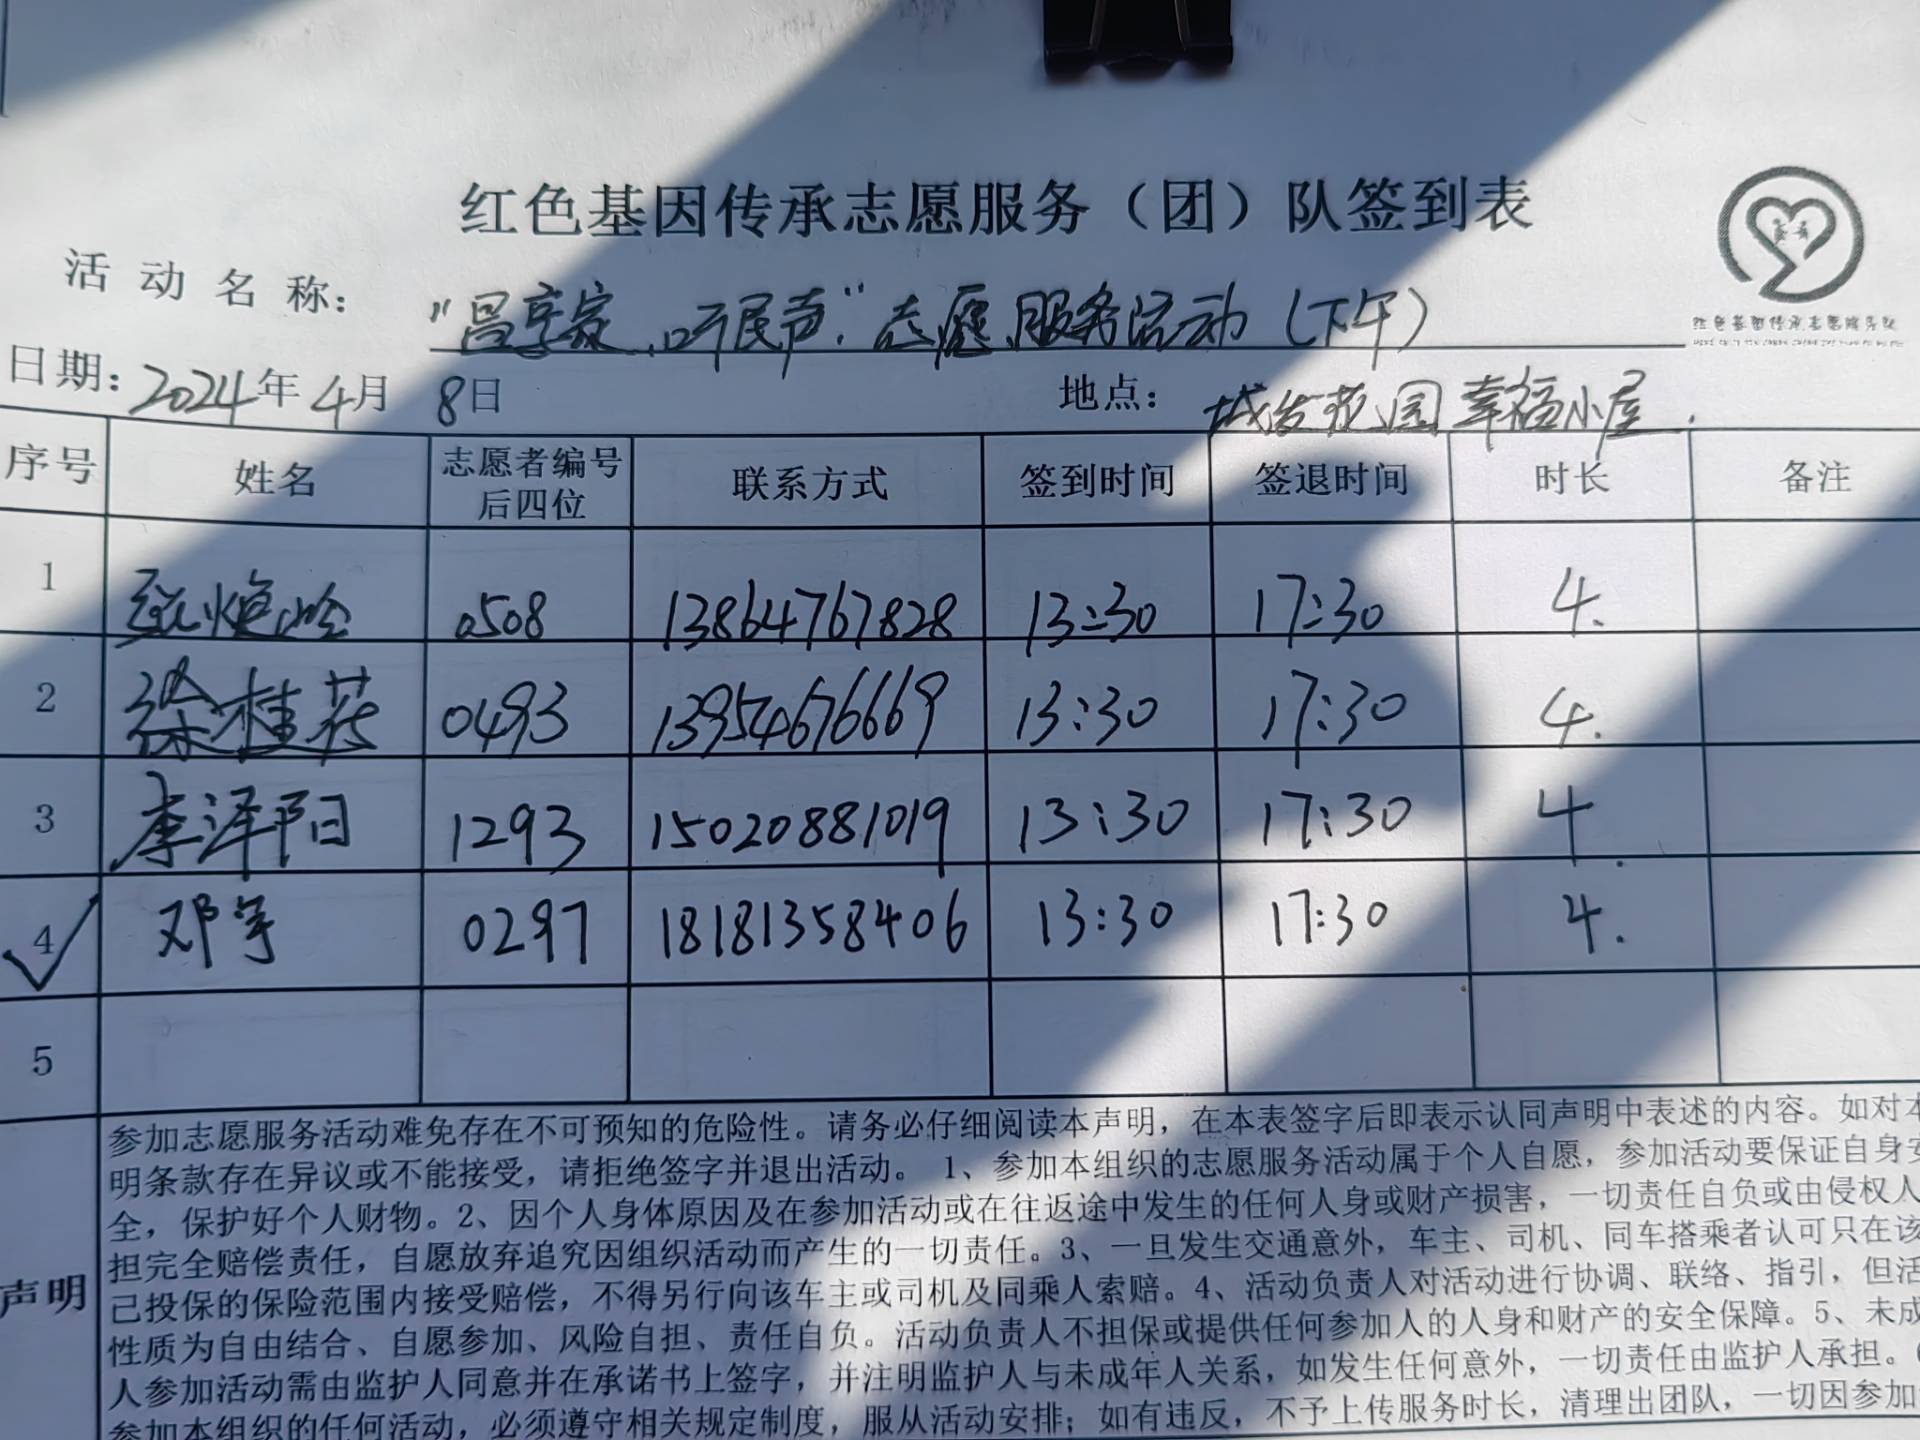 红色基因传承志愿服务（团）队签到表
活动名称：“昌享家,听民声”志愿服务活动（下午）
红色基因传承志愿服务队
日期：2024年4月8日 地点：城发花园幸福小屋.
序号 姓名 志愿者编号后四位 联系方式 签到时间 签退时间 时长 备注
1 0508 13864767828 13:30 17:30 4.
2 徐桂芬 0493 13954676669 13:30 17:30 4.
3 李泽阳 1293 15020881019 13:30 17:30 4.
4 邓宇 0297 18181358406 13:30 17:30 4.
5
声明
参加志愿服务活动难免存在不可预知的危险性。请务必仔细阅读本声明，在本表签字后即表示认同声明中表述的内容。如对本
明条款存在异议或不能接受，请拒绝签字并退出活动。 1、参加本组织的志愿服务活动属于个人自愿，参加活动要保证自身安
全，保护好个人财物。2、因个人身体原因及在参加活动或在往返途中发生的任何人身或财产损害，一切责任自负或由侵权人
担完全赔偿责任，自愿放弃追究因组织活动而产生的一切责任。3、一旦发生交通意外，车主、司机、同车搭乘者认可只在该
己投保的保险范围内接受赔偿，不得另行向该车主或司机及同乘人索赔。4、活动负责人对活动进行协调、联络、指引，但活
性质为自由结合、自愿参加、风险自担、责任自负。活动负责人不担保或提供任何参加人的人身和财产的安全保障。5、未成
人参加活动需由监护人同意并在承诺书上签字，并注明监护人与未成年人关系，如发生任何意外，一切责任由监护人承担。
参加本组织的任何活动，必须遵守相关规定制度，服从活动安排；如有违反，不予上传服务时长，清理出团队，一切因参加